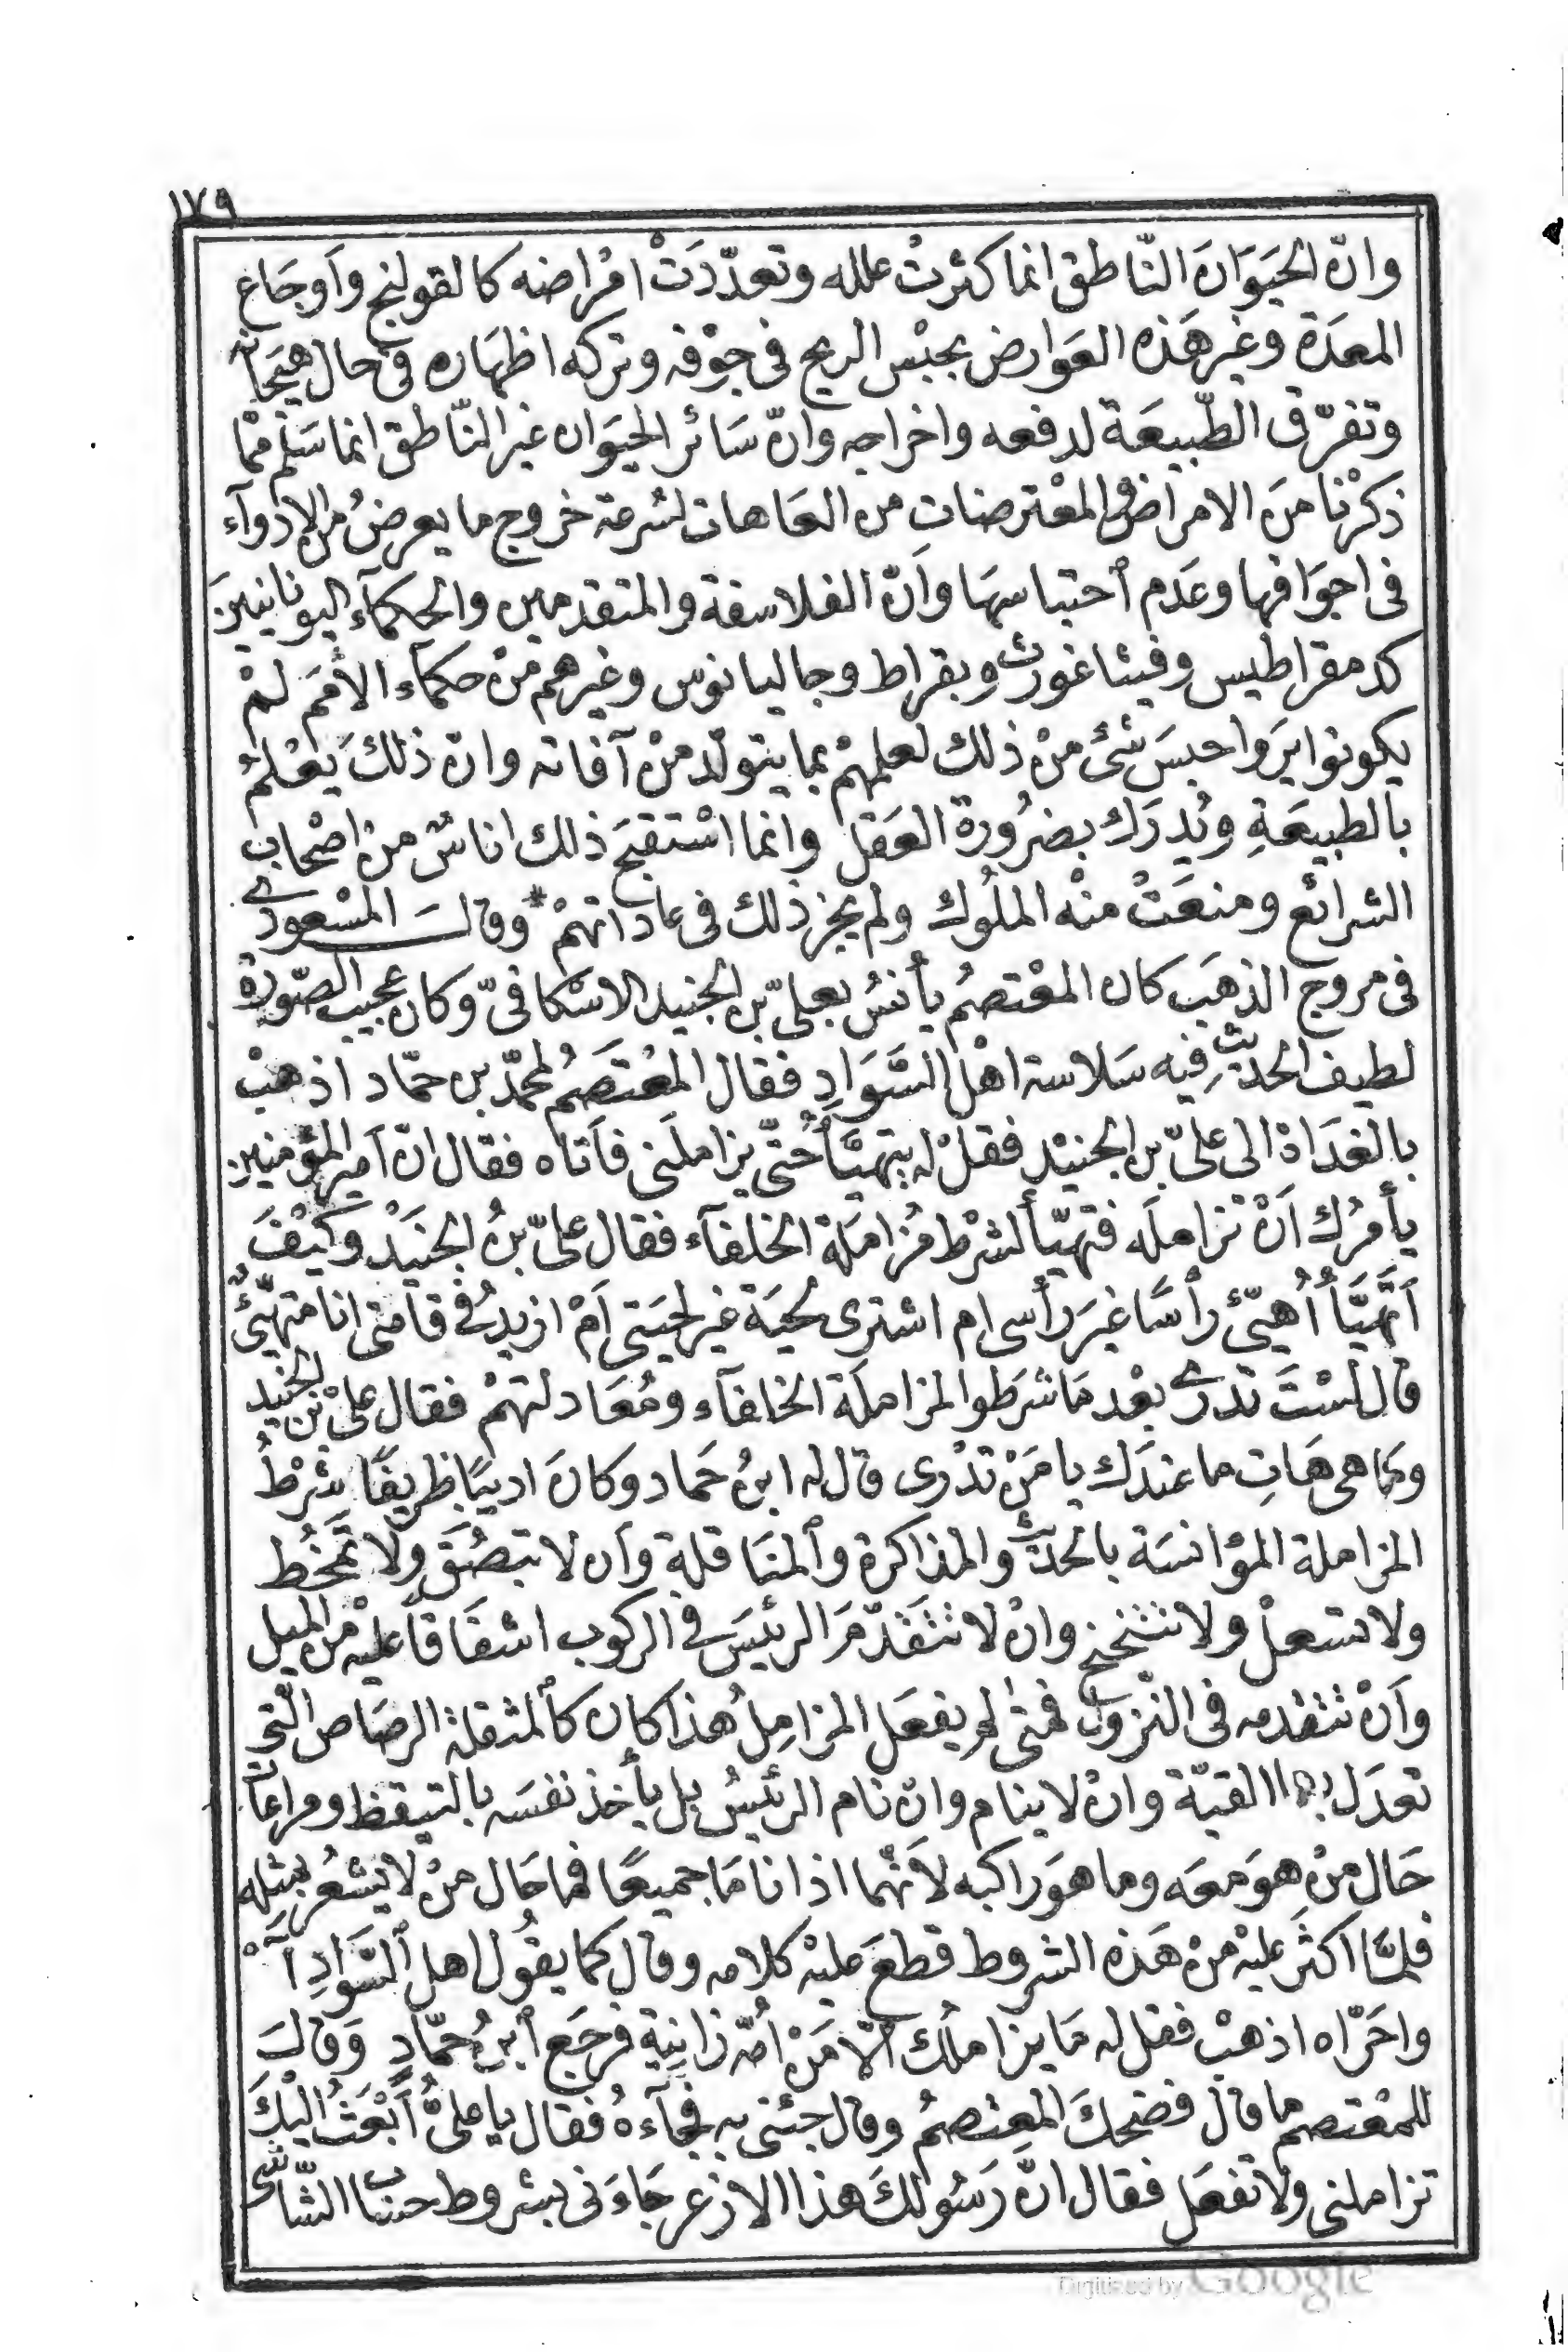 ١٧٩
وانّ الحَيَوَانَ النّاطق انما كثرتْ علله وتعدّدَتْ امْراضه كالقولنج وأوجَاع
المعدَة وغير هَذه العَوارض بحبْس الريح فى جوْفه وتركه اظهَاره فى حال هيَجانه
وتفرّق الطّبيعَة لدفعه واخراجه وانّ سَائر الحيَوان غير النّاطق انما سَلم ممّا
ذكرْنا منَ الامراض والمعْترضاتِ من العَاهات لسُرعة خروج ما يعرضُ من الادوآء
فى اجوَافها وعَدم ٱحتباسهَا وأنّ الفلاسفة والمتقدمين والحكمآء اليونانيينَ
كدمقراطيس وفيثاغورث وبقراط وجاليانوس وغيرهم منْ حكمآء الأمَم لمْ
يكونوا يرَوا حبسَ شئ منْ ذلك لعلمهمْ بما يتولّد منْ آفاته وانّ ذلكَ يَعْلمُ
بالطبيعَةِ ويُدرَك بضرُورة العَقل وانما اسْتقبحَ ذلك اناسٌ منْ اصْحاب
الشرائع ومنعَتْ منْه الملُوك ولم يجز ذلك فى عاداتهمْ * وقالَ المسْعودى
فى مروج الذهَب كان المعْتصمُ يأنسُ بعلىّ بن الجنيد الاسْكافىّ وكان عجيب الصّورة
لطيف الحديث فيه سَلاسة اهْل السَّوَادِ فقال المعْتَصمُ لمحمّد بن حمّاد اذهبْ
بالغدَاة الى علىّ بن الجنيْد فقلْ له يتهيَّأ حَتّى يزاملَنى فأتاه فقال انّ أمير المؤمنين
يأمرُك أنْ تزاملَه فتهيّأ لشرْط مُزامَلة الخلفآء فقال علىّ بنُ الجنَيْد وكيْفَ
أتَهَيَّأُ أُهيّئ رأسًا غيرَ رأسى ام اشترى لحيَة غير لحيَتى أمْ ازيدُ فى قامتى انا متهيّئٌ
قال لسْتَ تدرى بعْد مَا شرَطوا لمزاملَة الخلفآء ومُعَادلتهمْ فقال علىّ بْن الجنيد
وما هى هَاتِ ما عندَك يا مَنْ تدْرى قال له ابنُ حَماد وكانَ اديبًا ظريفًا شرْطُ
المزاملة المؤانسَة بالحديث والمذاكرة وٱلمنَاقلة وأن لا تبصُقَ ولا تمخُط
ولا تسعلْ ولا تتنحنح وانْ لا تتقَدّمَ الرئيسَ فى الركوب اشفَاقًا عليْه من الميل
وأنْ تتقدمه فى النّزول فمتى لم يفعَل المزامِلُ هُذا كان كٱلمثقلة الرصَاص الّتى
تعدَل بها القبّة وانْ لا ينام وانْ نام الرئيسُ بل يأخذ نفسَه بالتيقظ ومراعاة
حَال منْ هوَ معَه وما هوَ راكبه لأنّهما اذا نامَا جميعًا فما حَال منْ لا يشعُر بمثله
فلمَّا اكثَر عليْه منْ هَذه الشروط قطعَ عليْه كلامه وقال كما يقُول اهل ٱلسَّوَادِ آه
واحَرّاه اذهبْ فقل له مَا يزاملُك الّا مَنْ امّه زانِية فرجَع ٱبنُ حمّادٍ وَقالَ
للمعْتصم ما قالَ فضحكَ المعتصمُ وقال جئنى به فجآءهُ فقال يا علىُّ أَبْعَثُ اليْكَ
تزاملنى ولا تفعَل فقال انّ رَسُولكَ هذا الازعر جَاءَنى بشروط حسّاب الشّاشى